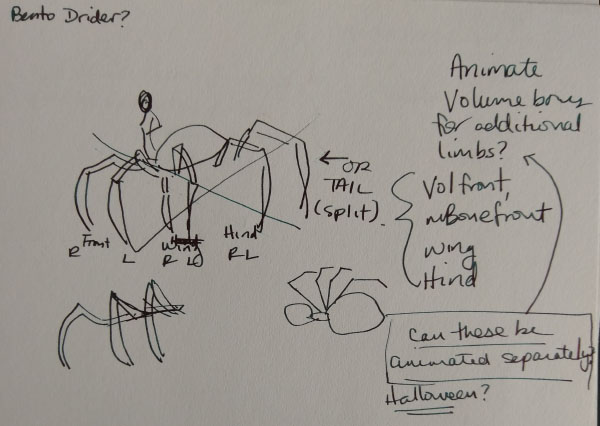 Bento Drider?
Animate
Volume bones
for additional
limbs?
← OR
TAIL
(split).
Vol front,
mBonefront
wing
Hind
Front
R L
Wing
R L
Hind
R L
can these be
animated separately?
Halloween?